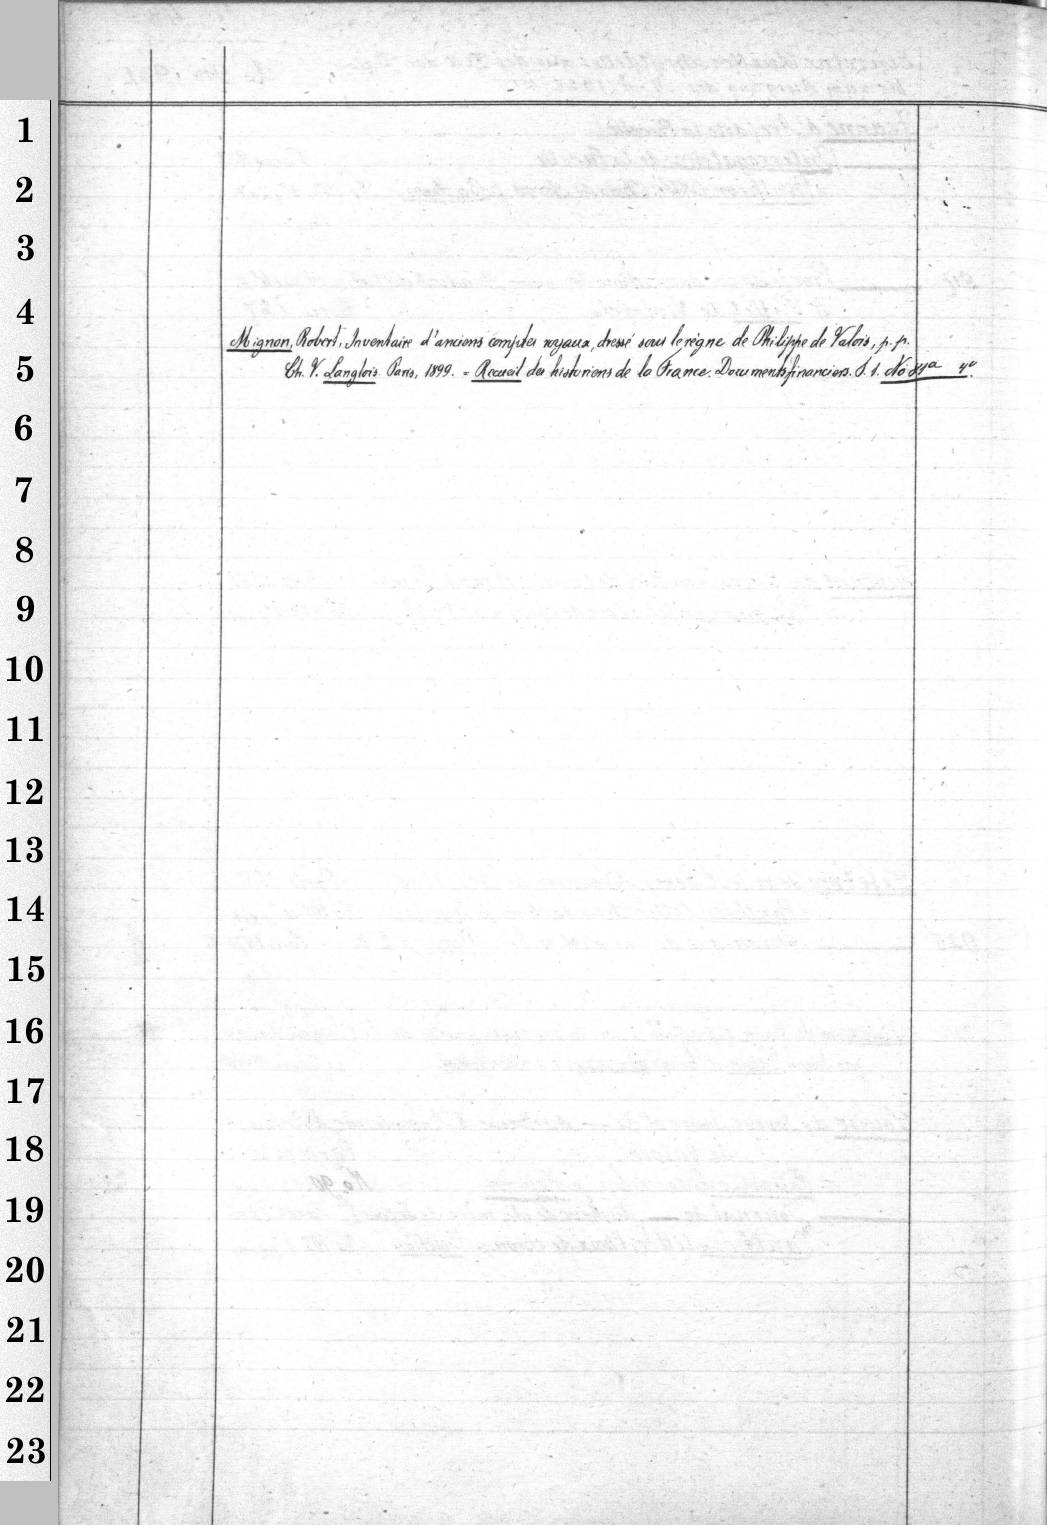 1
2
3
4
Mignon, Robert, Inventaire d'anciens comptes royaux, dressé sous le règne de Philippe de Valois, p. p.
5
Ch. V. Langlois. Paris, 1899. = Recueil des historiens de la France. Documents financiers. t. 1. No 4o.
6
7
8
9
10
11
12
13
14
15
16
17
18
19
20
21
22
23